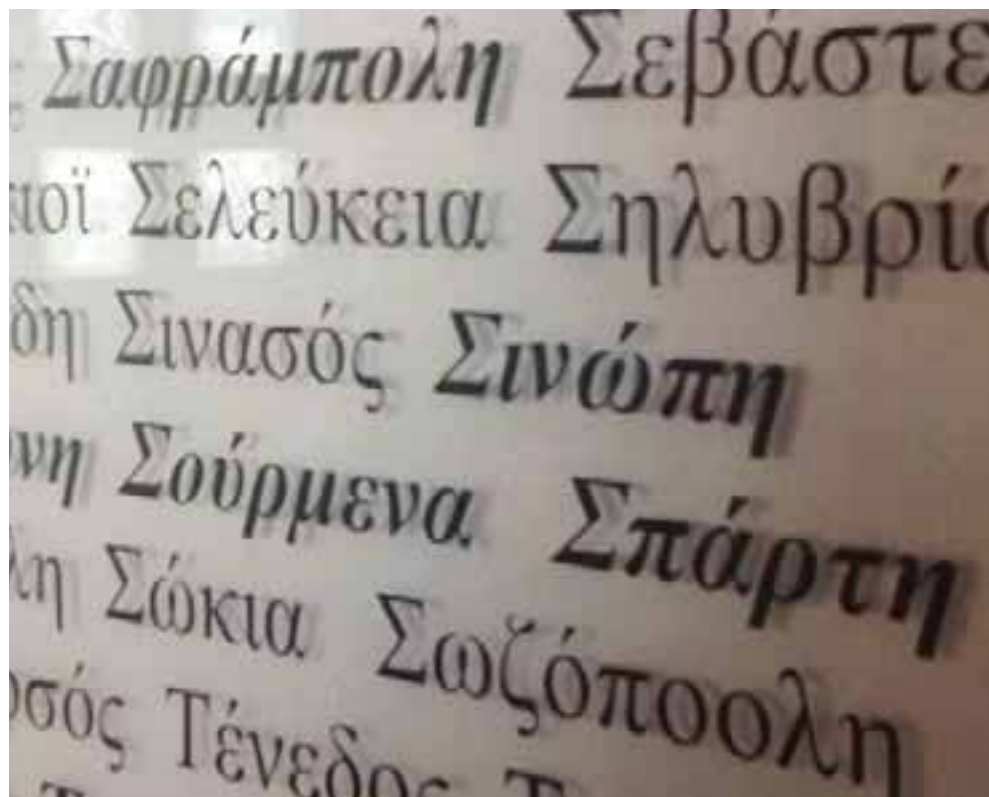 Σαφράμπολη Σεβάστε
ιοϊ Σελεύκεια Σηλυβρία
δη Σινασός Σινώπη
νη Σούρμενα Σπάρτη
λη Σώκια Σωζόποολη
οσός Τένεδος